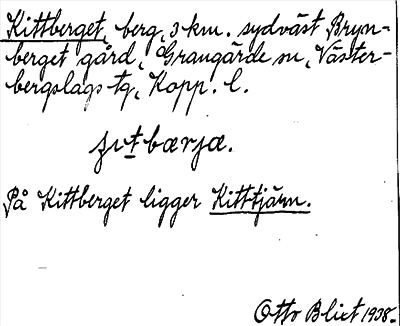 Kittberget, berg, 3 km. sydväst Bryn-
berget gård, Grangärde sn, Väster-
bergslags tg, Kopp. l.
På Kittberget ligger Kittjärn.
Otto Blixt 1938.